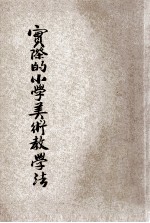 實際的小學美術教學法